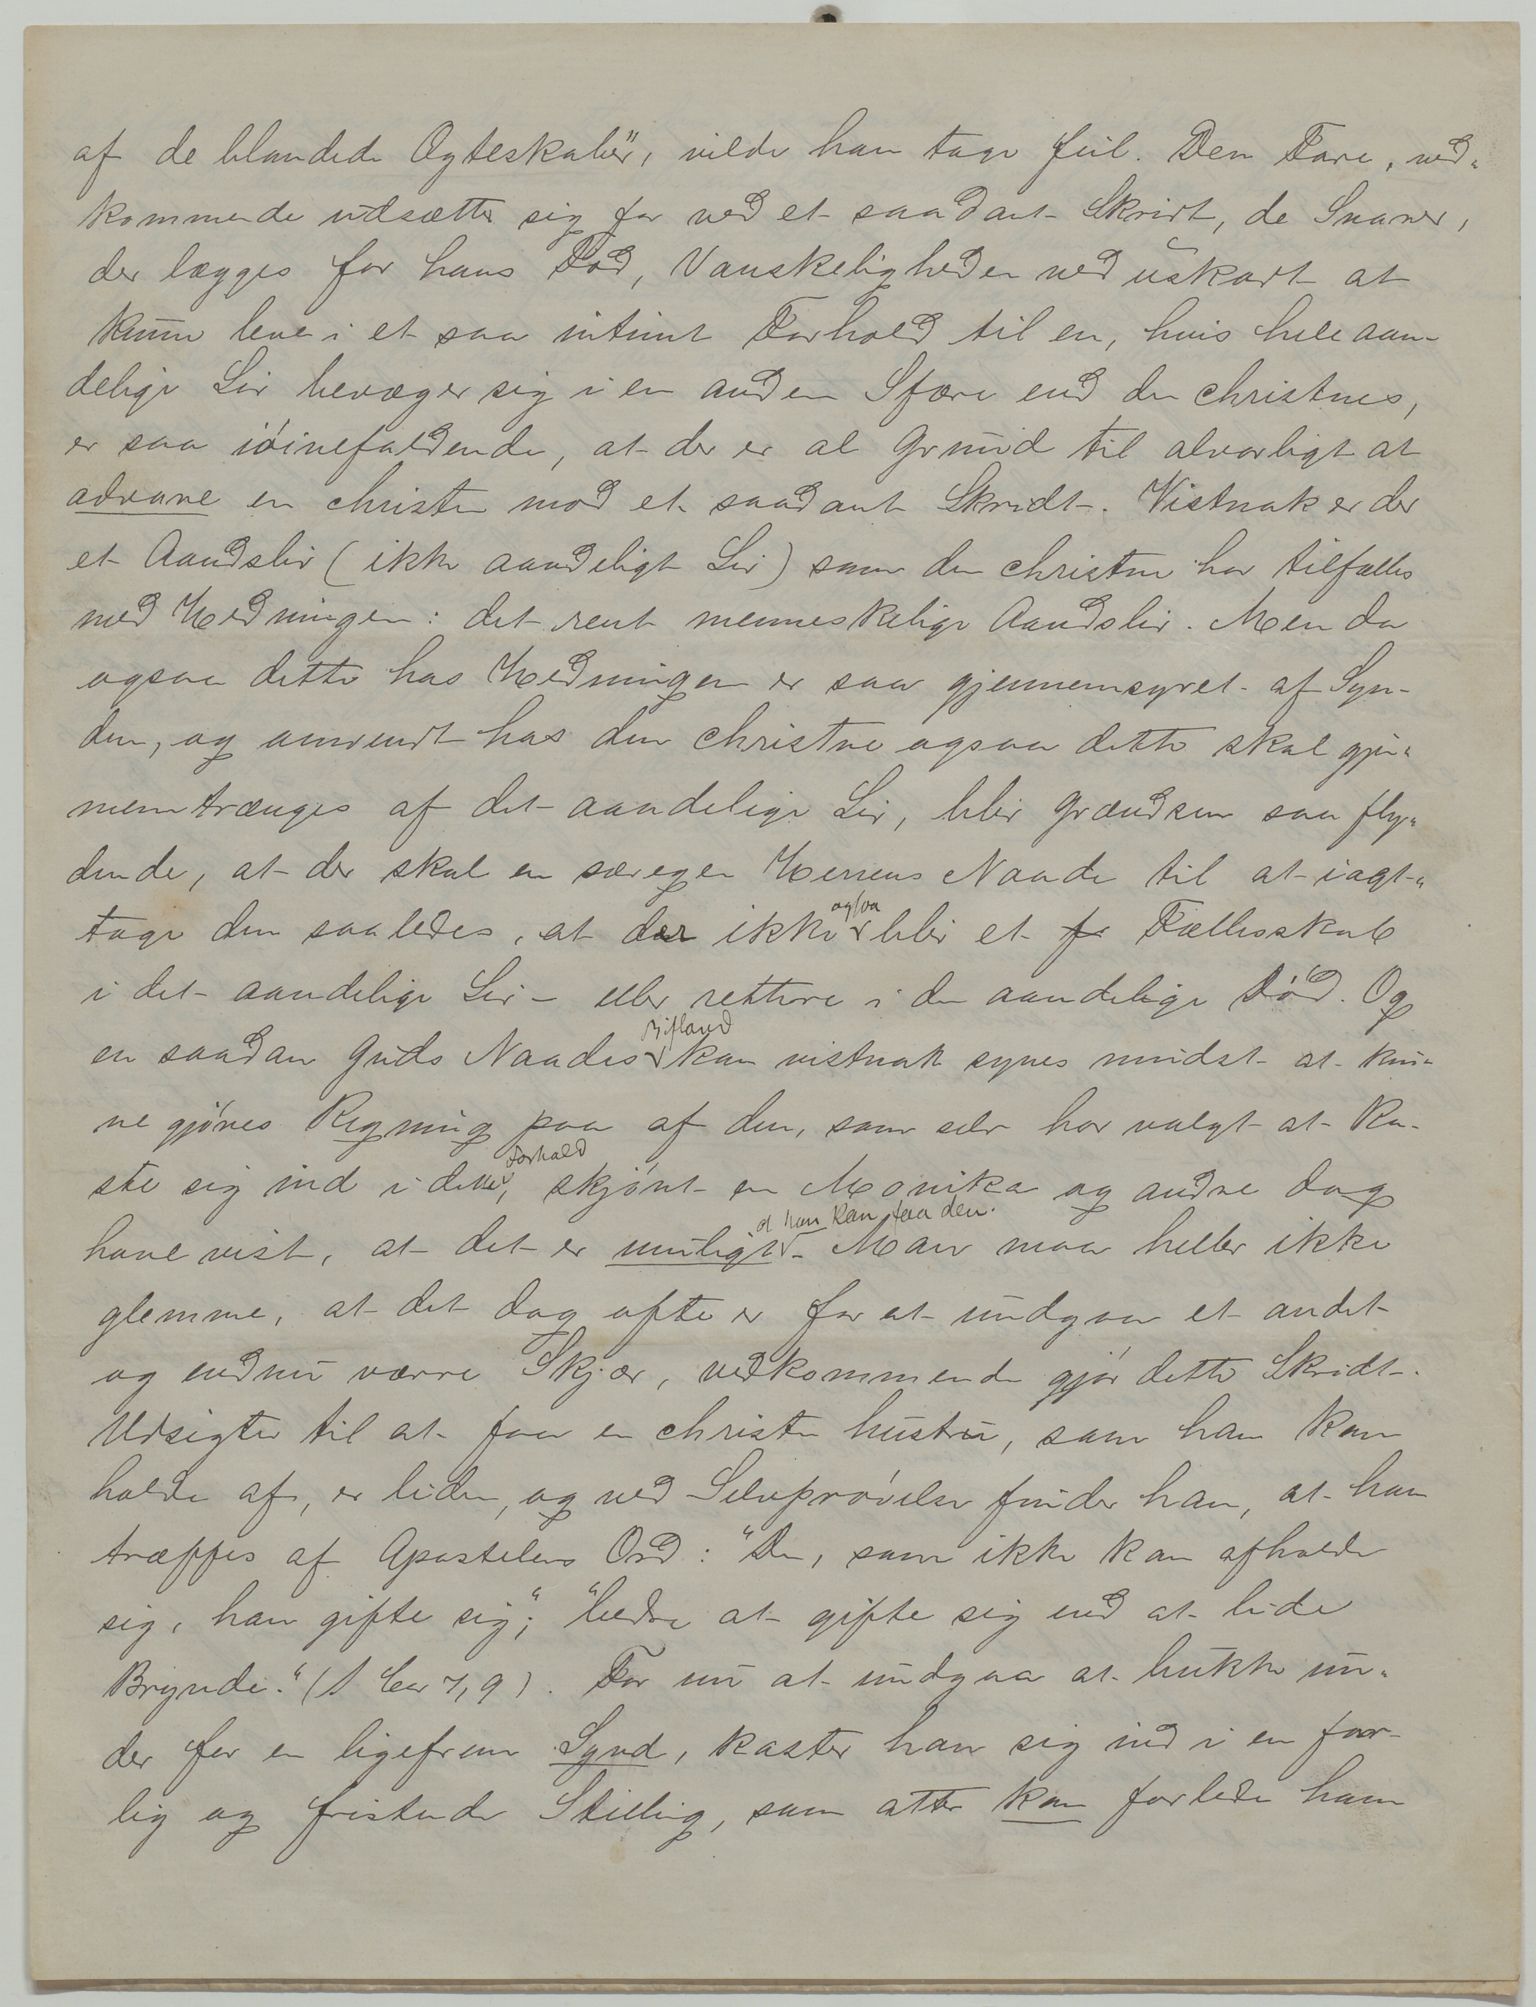 af de blandede Ægteskaber", vilde han tage feil. Den Fare, ved-
kommende udsætter sig for ved et saadant Skridt, de Snarer,
der lægges for hans Fod, Vanskeligheden ved uskadt at
kunne leve i et saa intimt Forhold til en, hvis hele aan-
delige Liv bevæger sig i en anden Sfære end den christnes,
er saa iøinefaldende, at der er al Grund til alvorligt at
advare en christen mod et saadant Skridt. Vistnok er der
et Aandsliv (ikke aandeligt Liv) som den christne har tilfælles
med Hedningen: det rent menneskelige Aandsliv. Men da
ogsaa dette hos Hedningen er saa gjennemsyret af Syn-
den, og omvendt hos den christne ogsaa dette skal gjen-
nemtrænges af det aandelige Liv, blir Grændsen saa fly-
dende, at der skal en særegen Herrens Naade til at iagt-
tage den saaledes, at der ikke ogsaa blir et Fællesskab
i det aandelige Liv – eller rettere i den aandelige Død. Og
en saadan Guds Naades Bistand kan vistnok synes mindst at kun-
ne gjøres Regning paa af den, som selv har valgt at ka-
ste sig ind i dette Forhold, skjønt en Monika og andre dog
have vist, at det er muligt at han kan faa den. Man maa heller ikke
glemme, at det dog ofte er for at undgaa et andet
og endnu værre Skjær, vedkommende gjør dette Skridt.
Udsigten til at faa en christen hustru, som han kan
holde af, er liden, og ved Selvprøvelse finder han, at han
træffes af Apostelens Ord: "Den, som ikke kan afholde
sig, han gifte sig"; "bedre at gifte sig end at lide
Brynde." (1 Cor 7,9). For nu at undgaa at bukke un-
der for en ligefrem Synd, kaster han sig ind i en far-
lig og fristende Stilling, som atter kan forlede ham